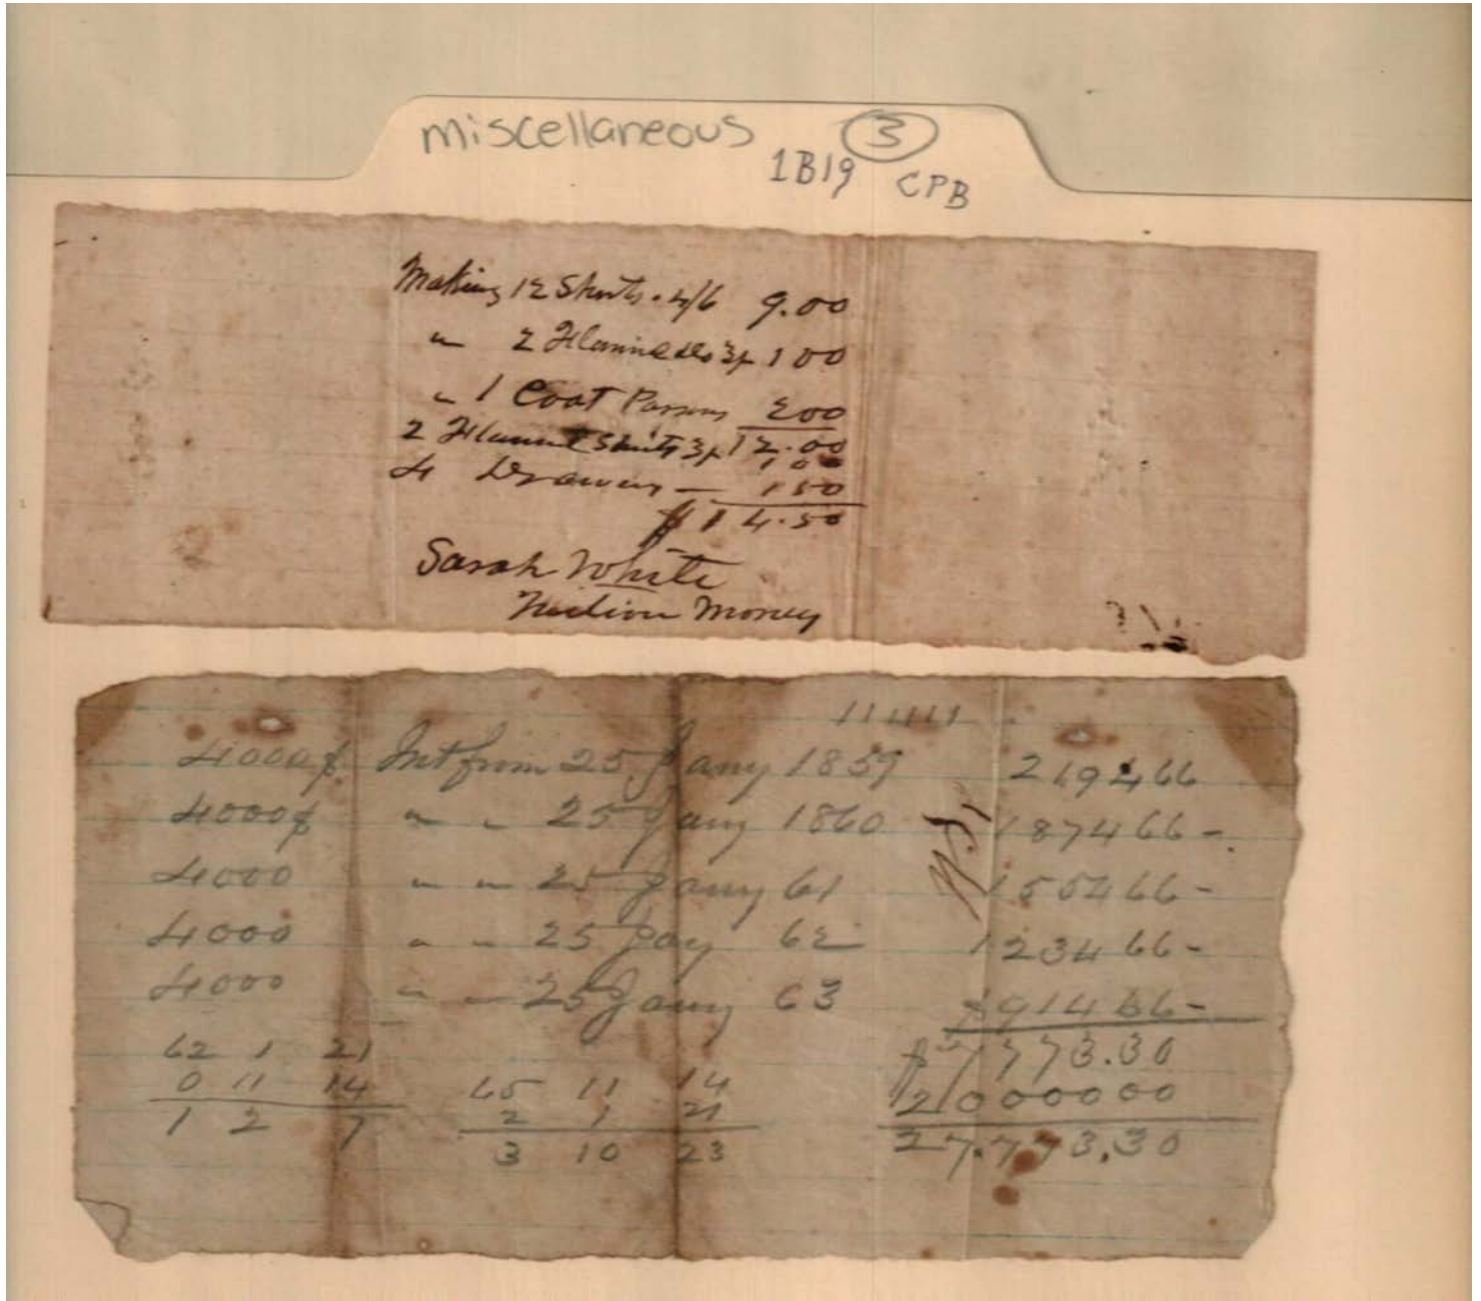 miscellaneous 3
1B19 CPB
Making 12 Shirts . 4/6 9.00
" 2 Flannel do 3/ 1 00
" 1 Coat Parsons 200
12.00
2 Flannel Shirts 3/ 100
4 Drawers — 150
$14.50
Sarah White
Tuition Money
111111
4000$ Int from 25 Jany 1859 219466
4000$ " " 25 Jany 1860 187466-
4000 " " 25 Jany 61 155466-
4000 " " 25 Jay 62 123466-
4000 " " 25 Jany 63 $91466-
$7773.30
62 1 21
0 11 14 65 11 14 2000000
1 2 7 2 1 21 27.773.30
3 10 23